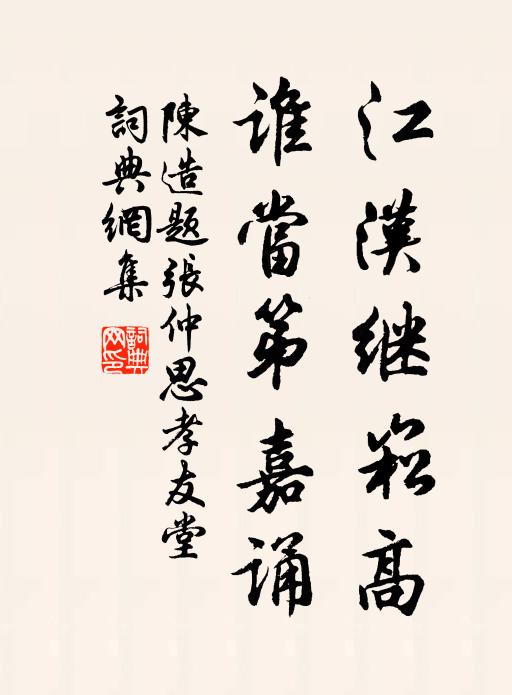 江漢继崧高
誰當第嘉誦
陳造题張仲思孝友堂
詞典網集
詞典網印